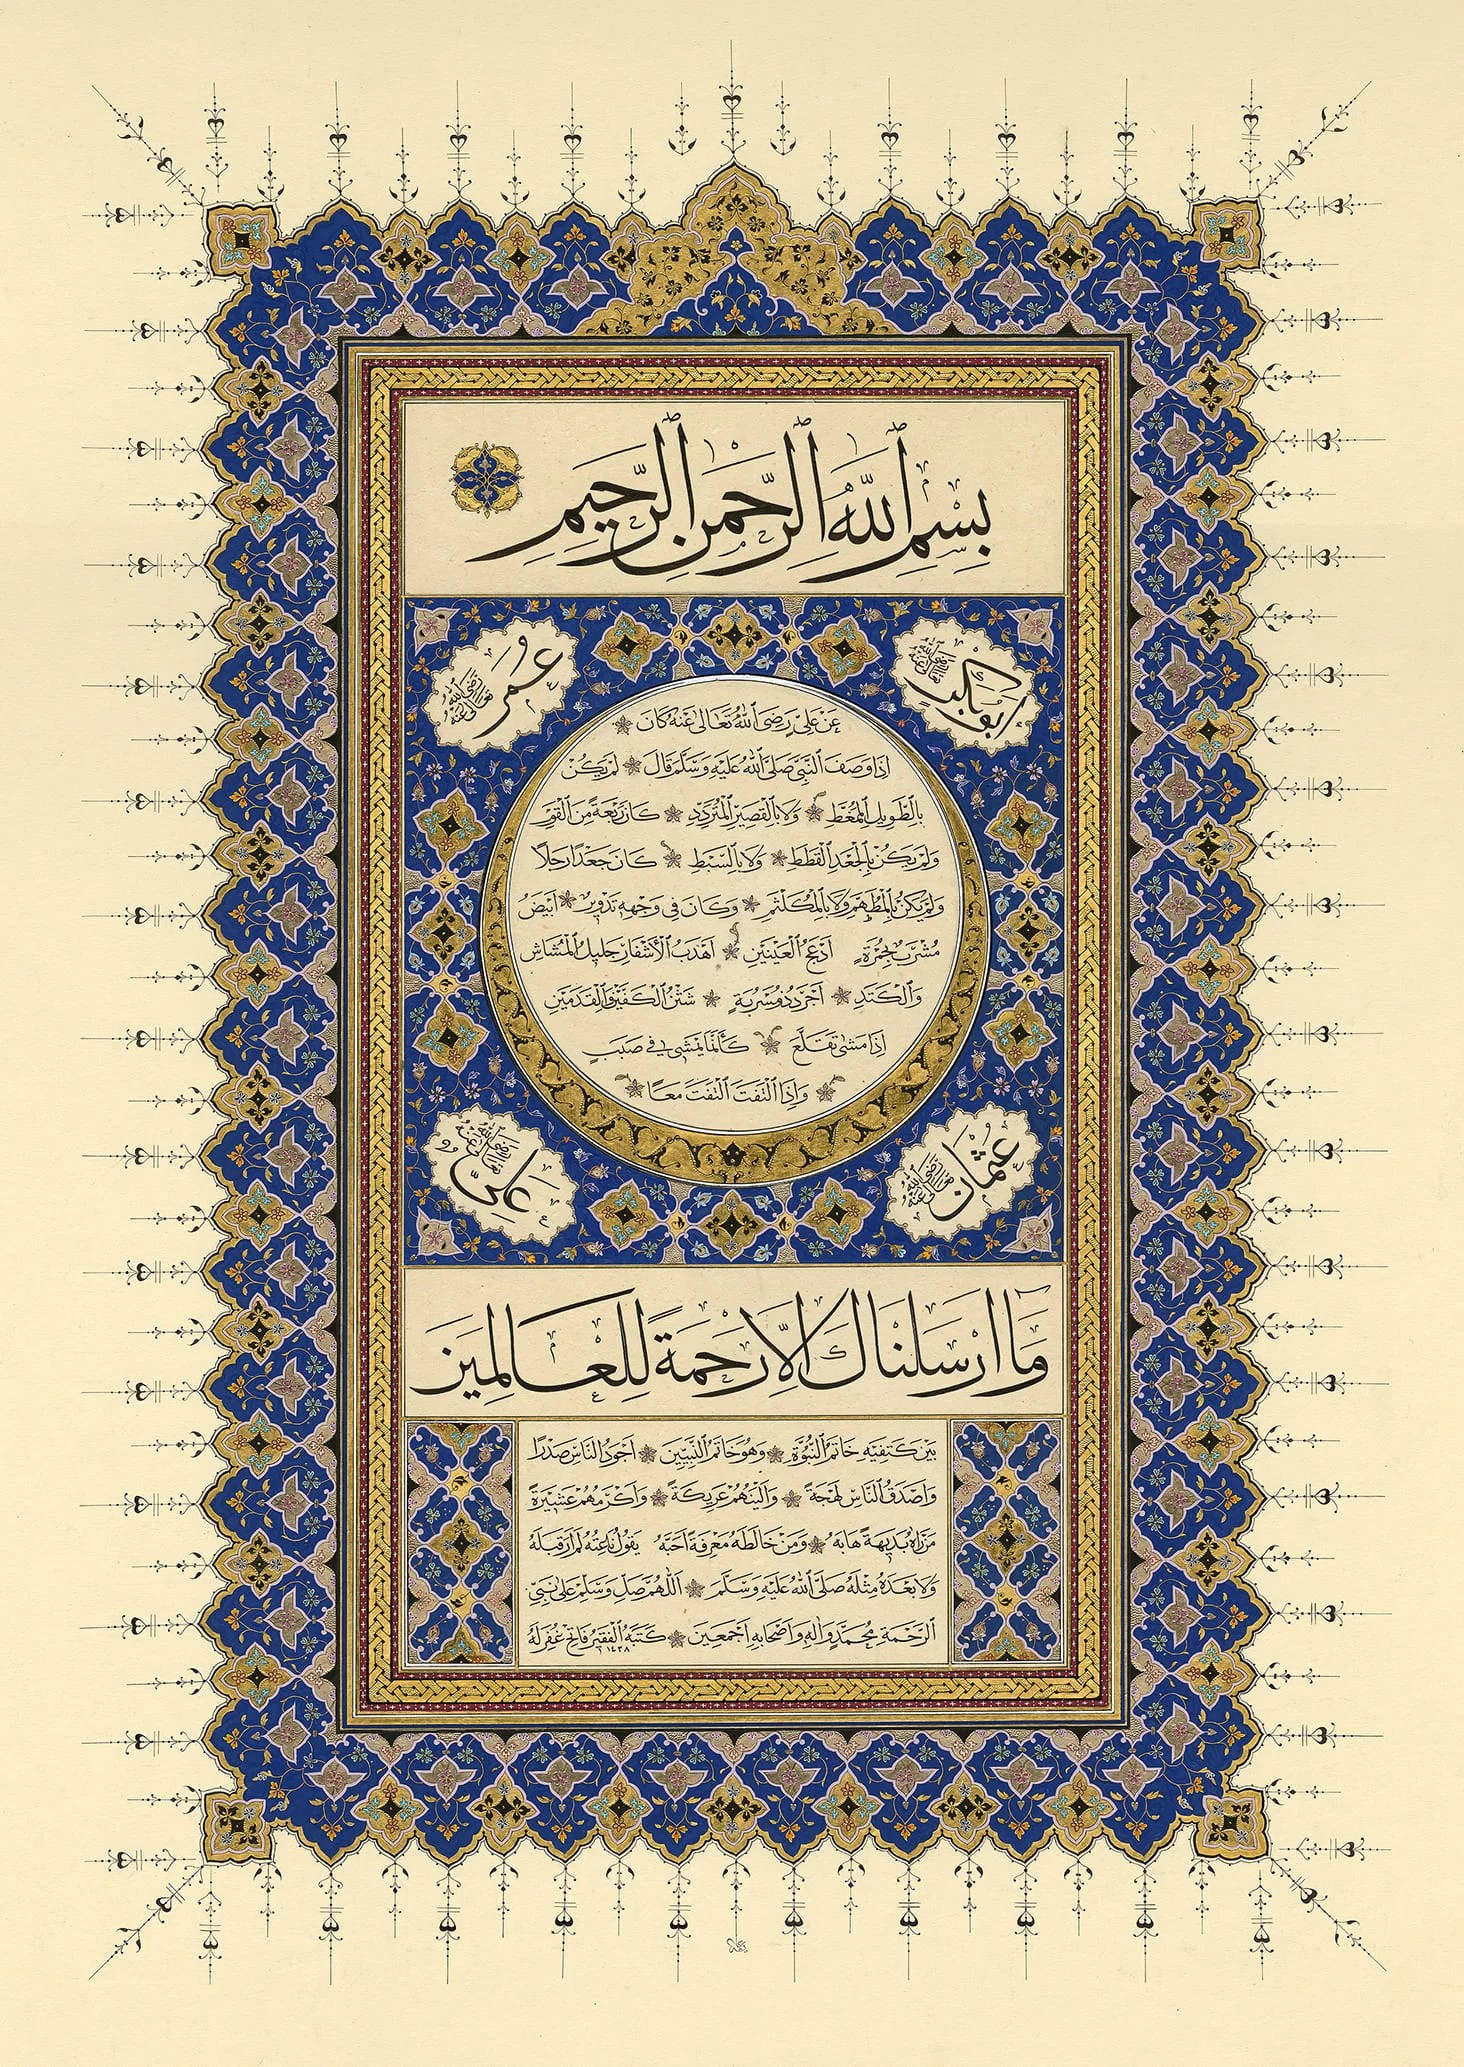 بِسْمِ اللهِ الرَّحْمٰنِ الرَّحِيمِ
ابو بكر رضي الله تعالى عنه
عمر رضي الله تعالى عنه
عَنْ عَلِيٍّ رَضِيَ اللهُ تَعَالَى عَنْهُ كَانَ
إِذَا وَصَفَ النَّبِيَّ صَلَّى اللهُ عَلَيْهِ وَسَلَّمَ قَالَ لَمْ يَكُنْ
بِالطَّوِيلِ الْمُمَّغِطِ وَلَا بِالْقَصِيرِ الْمُتَرَدِّدِ كَانَ رَبْعَةً مِنَ الْقَوْمِ
وَلَمْ يَكُنْ بِالْجَعْدِ الْقَطَطِ وَلَا بِالسَّبْطِ كَانَ جَعْدًا رَجِلًا
وَلَمْ يَكُنْ بِالْمُطَهَّمِ وَلَا بِالْمُكَلْثَمِ وَكَانَ فِي وَجْهِهِ تَدْوِيرٌ أَبْيَضُ
مُشْرَبٌ بِحُمْرَةٍ أَدْعَجُ الْعَيْنَيْنِ أَهْدَبُ الْأَشْفَارِ جَلِيلُ الْمُشَاشِ
وَالْكَتَدِ أَجْرَدُ ذُو مَسْرُبَةٍ شَثْنُ الْكَفَّيْنِ وَالْقَدَمَيْنِ
إِذَا مَشَى تَقَلَّعَ كَأَنَّمَا يَمْشِي فِي صَبَبٍ
وَإِذَا الْتَفَتَ الْتَفَتَ مَعًا
عثمان رضي الله تعالى عنه
علي رضي الله تعالى عنه
وَمَا اَرْسَلْنَاكَ اِلَّا رَحْمَةً لِلْعَالَمِينَ
بَيْنَ كَتِفَيْهِ خَاتَمُ النُّبُوَّةِ وَهُوَ خَاتَمُ النَّبِيِّينَ أَجْوَدُ النَّاسِ صَدْرًا
وَأَصْدَقُ النَّاسِ لَهْجَةً وَأَلْيَنُهُمْ عَرِيكَةً وَأَكْرَمُهُمْ عَشِيرَةً
مَنْ رَآهُ بَدِيهَةً هَابَهُ وَمَنْ خَالَطَهُ مَعْرِفَةً أَحَبَّهُ يَقُولُ نَاعِتُهُ لَمْ أَرَ قَبْلَهُ
وَلَا بَعْدَهُ مِثْلَهُ صَلَّى اللهُ عَلَيْهِ وَسَلَّمَ اَللّٰهُمَّ صَلِّ وَسَلِّمْ عَلَى نَبِيِّ
الرَّحْمَةِ مُحَمَّدٍ وَآلِهِ وَأَصْحَابِهِ أَجْمَعِينَ كَتَبَهُ الْفَقِيرُ فَاتِح غُفِرَ لَهُ
١٤٢٨